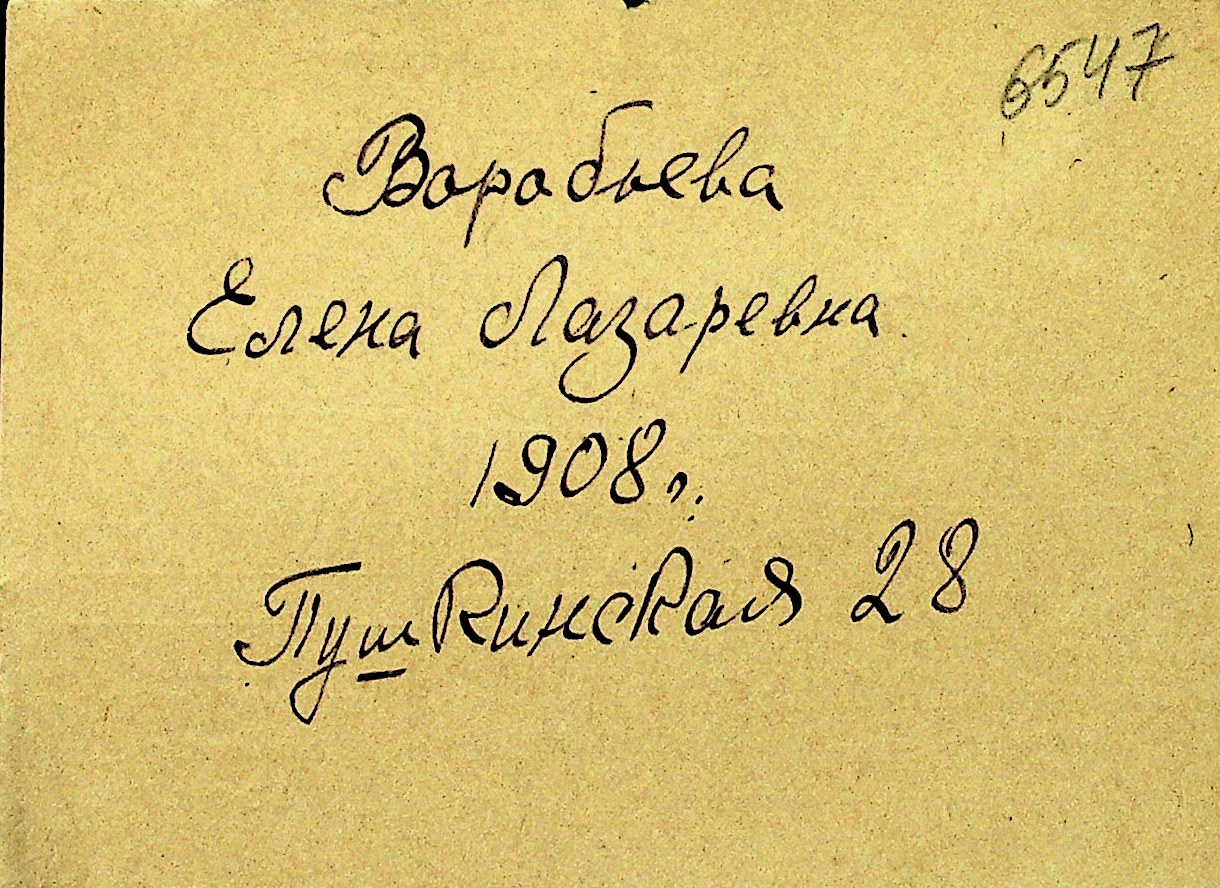 6547
Воробьева
Елена Лазаревна
1908 г.
Пушкинская 28